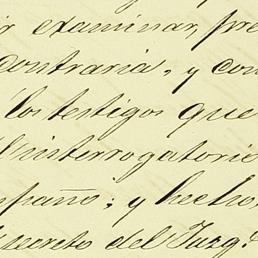 r examinar, pre
contraria, y con
los testigos que
l interrogatorio
mpaño; y hecho
decreto del Juzg.